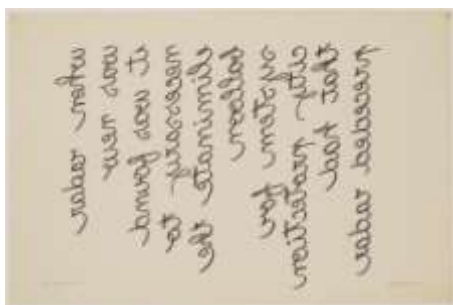 when radar
was new
it was found
necessary to
eliminate the
balloon
system for
city protection
that had
preceded radar